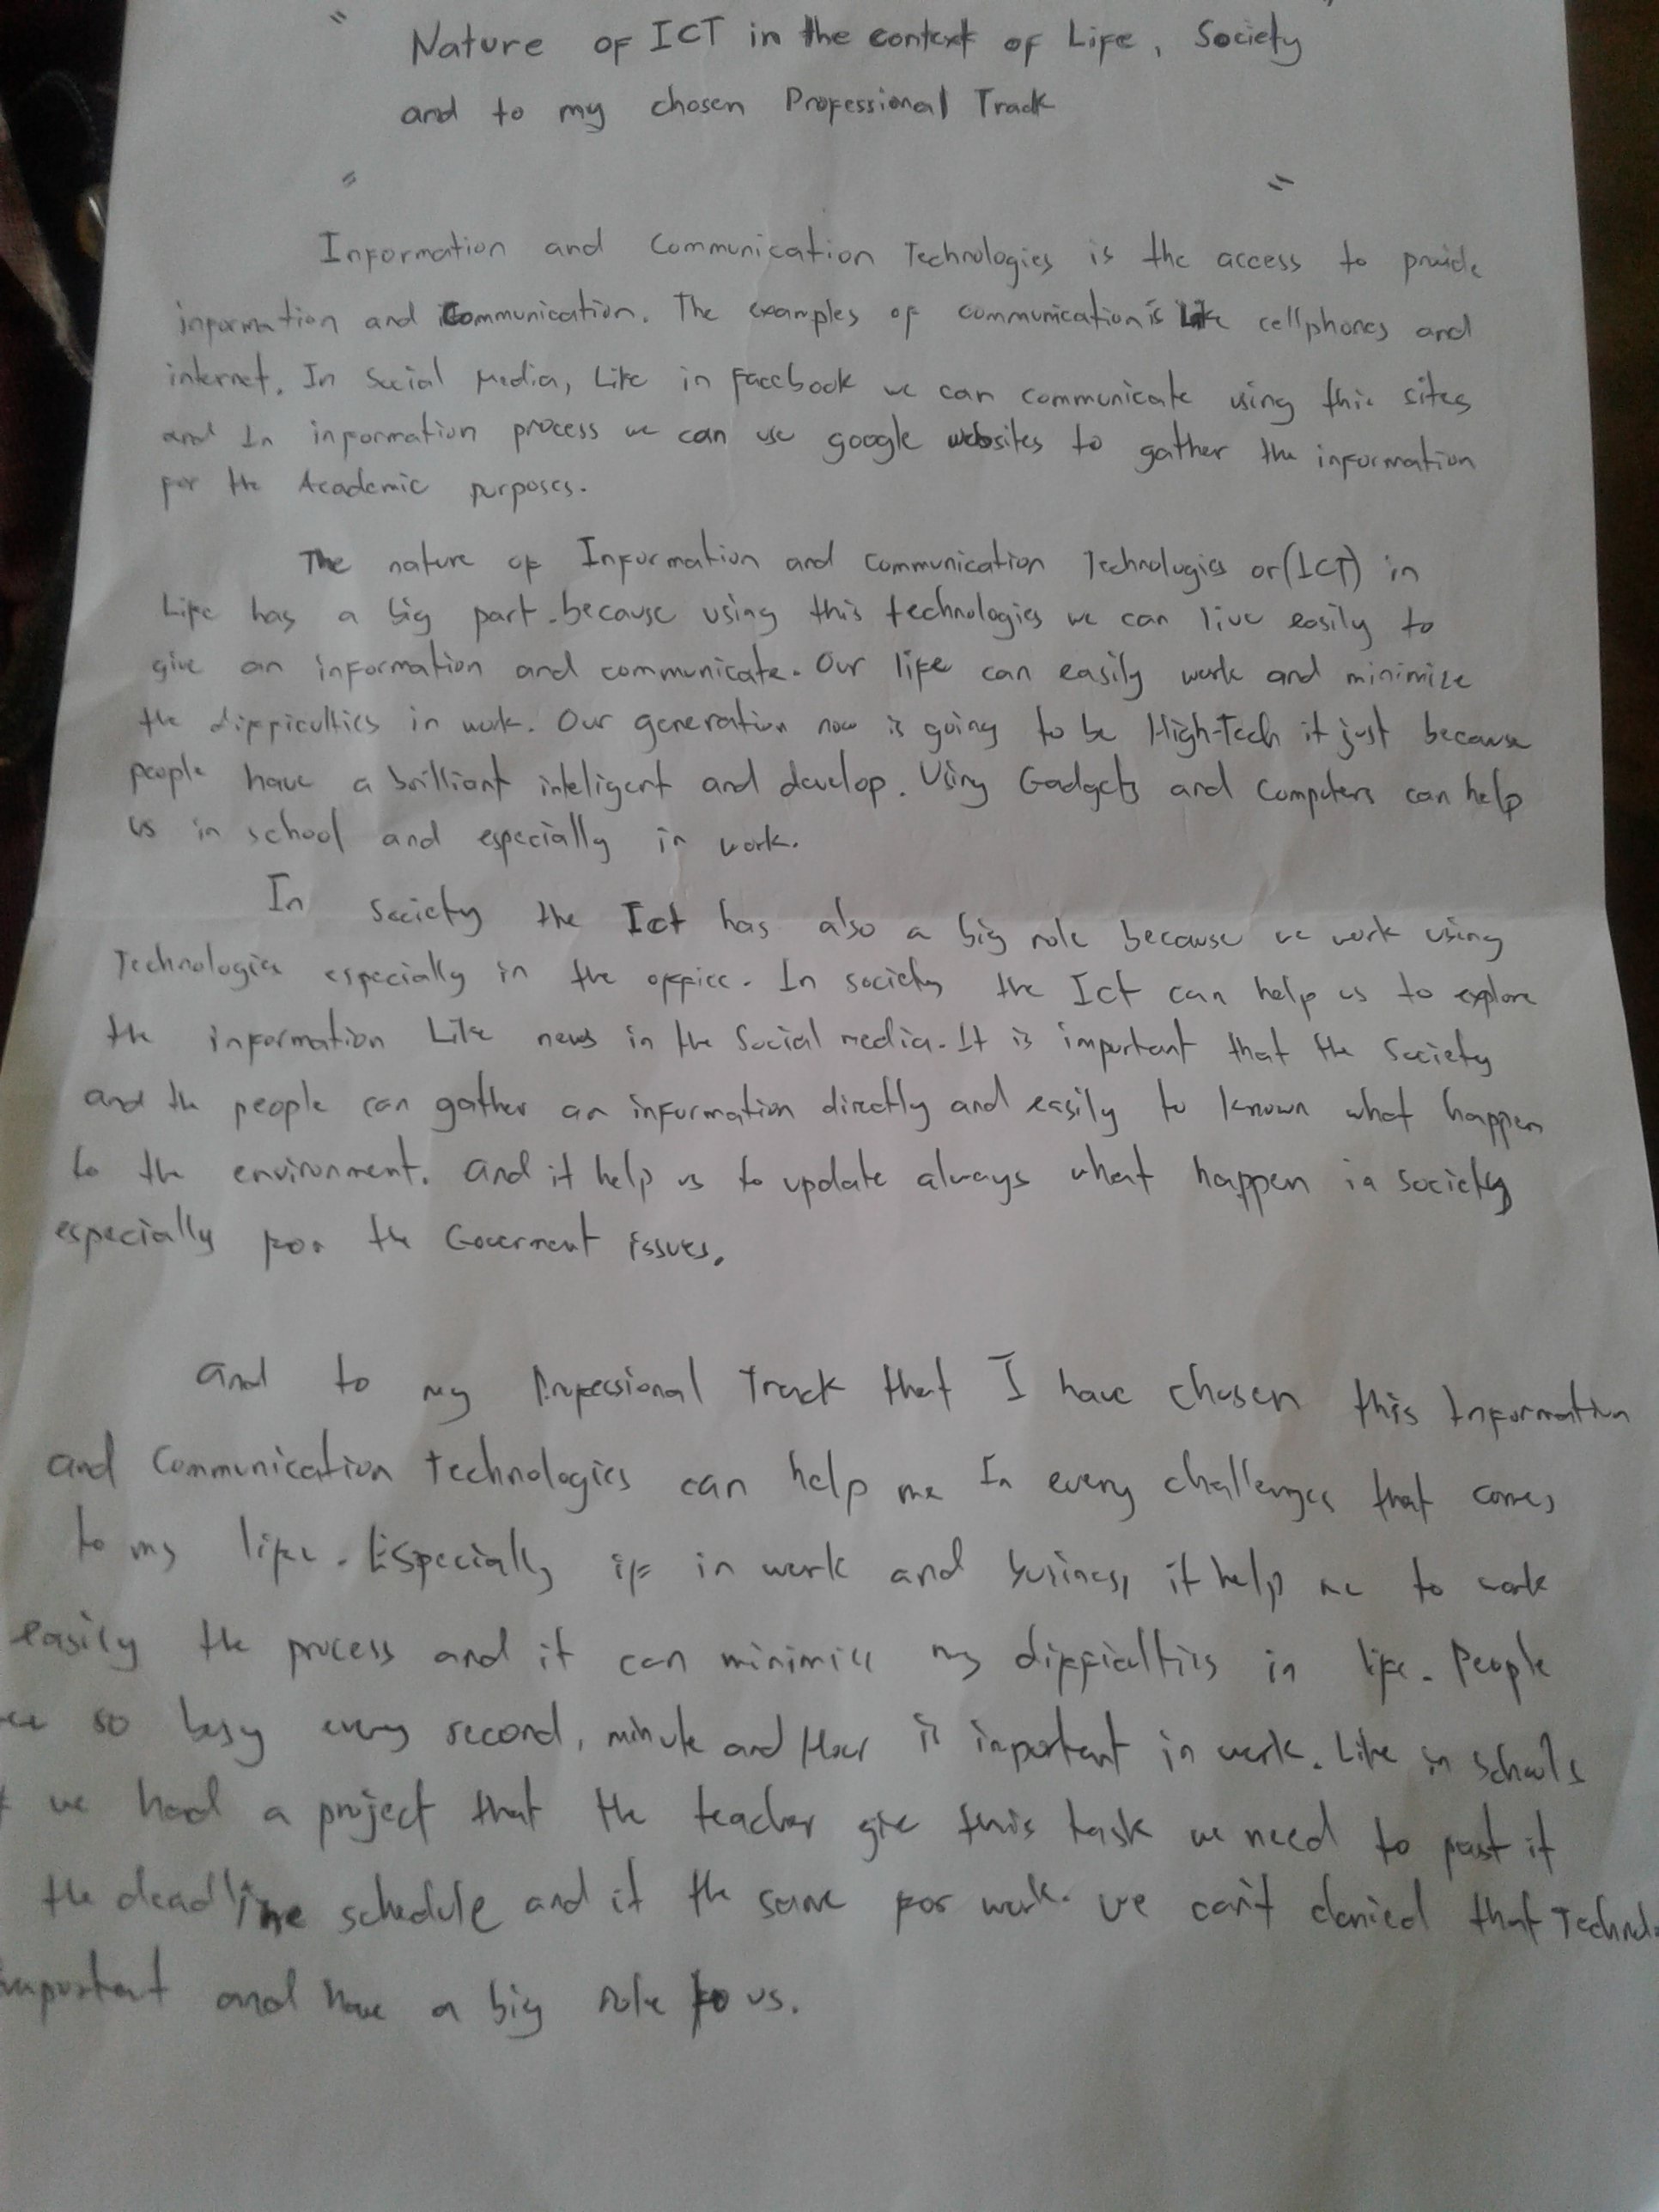 " Nature of ICT in the context of Life, Society
and to my chosen Professional Track
" "
Information and Communication Technologies is the access to provide
information and Communication. The examples of communication is Like cellphones and
internet. In Social Media, Like in Facebook we can communicate using this sites
and In information process we can use google websites to gather the information
for the Academic purposes.
The nature of Information and Communication Technologies or (ICT) in
Life has a big part. because using this technologies we can live easily to
give an information and communicate. Our life can easily work and minimize
the difficulties in work. Our generation now is going to be High-Tech it just because
people have a brilliant inteligent and develop. Using Gadgets and Computers can help
us in school and especially in work.
In Society the Ict has also a big role because we work using
Technologies especially in the office. In society the Ict can help us to explore
the information Like news in the Social media. It is important that the Society
and the people can gather an information directly and easily to known what happen
to the environment. and it help us to update always what happen in society
especially for the Goverment issues.
and to my Professional Track that I have chosen this Information
and Communication technologies can help me In every challenges that comes
to my life. Especially if in work and business it help me to work
easily the process and it can minimize my difficulties in life. People
so busy every second, minute and Hour is important in work. Like in schools
we had a project that the teacher give this task we need to past it
the deadline schedule and it the same for work. we can't denied that
important and have a big role to us.